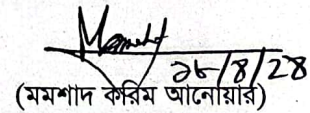 ২৮/৪/২৪
(মমশাদ করিম আনোয়ার)